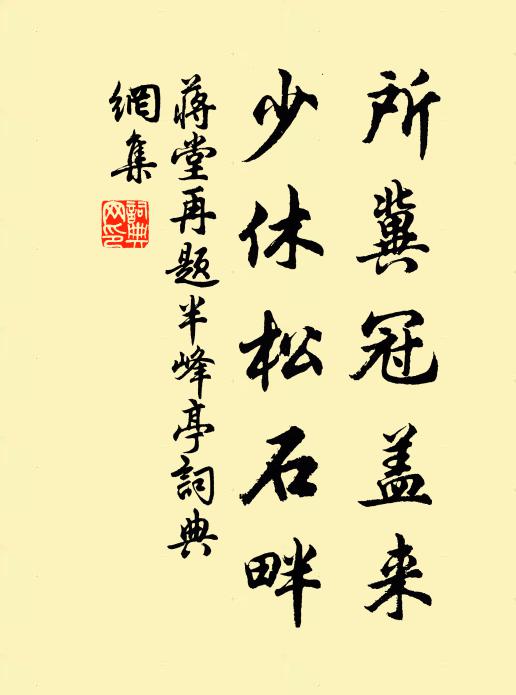 所冀冠盖来
少休松石畔
蒋堂再题半峰亭词典
網集
詞典
网印